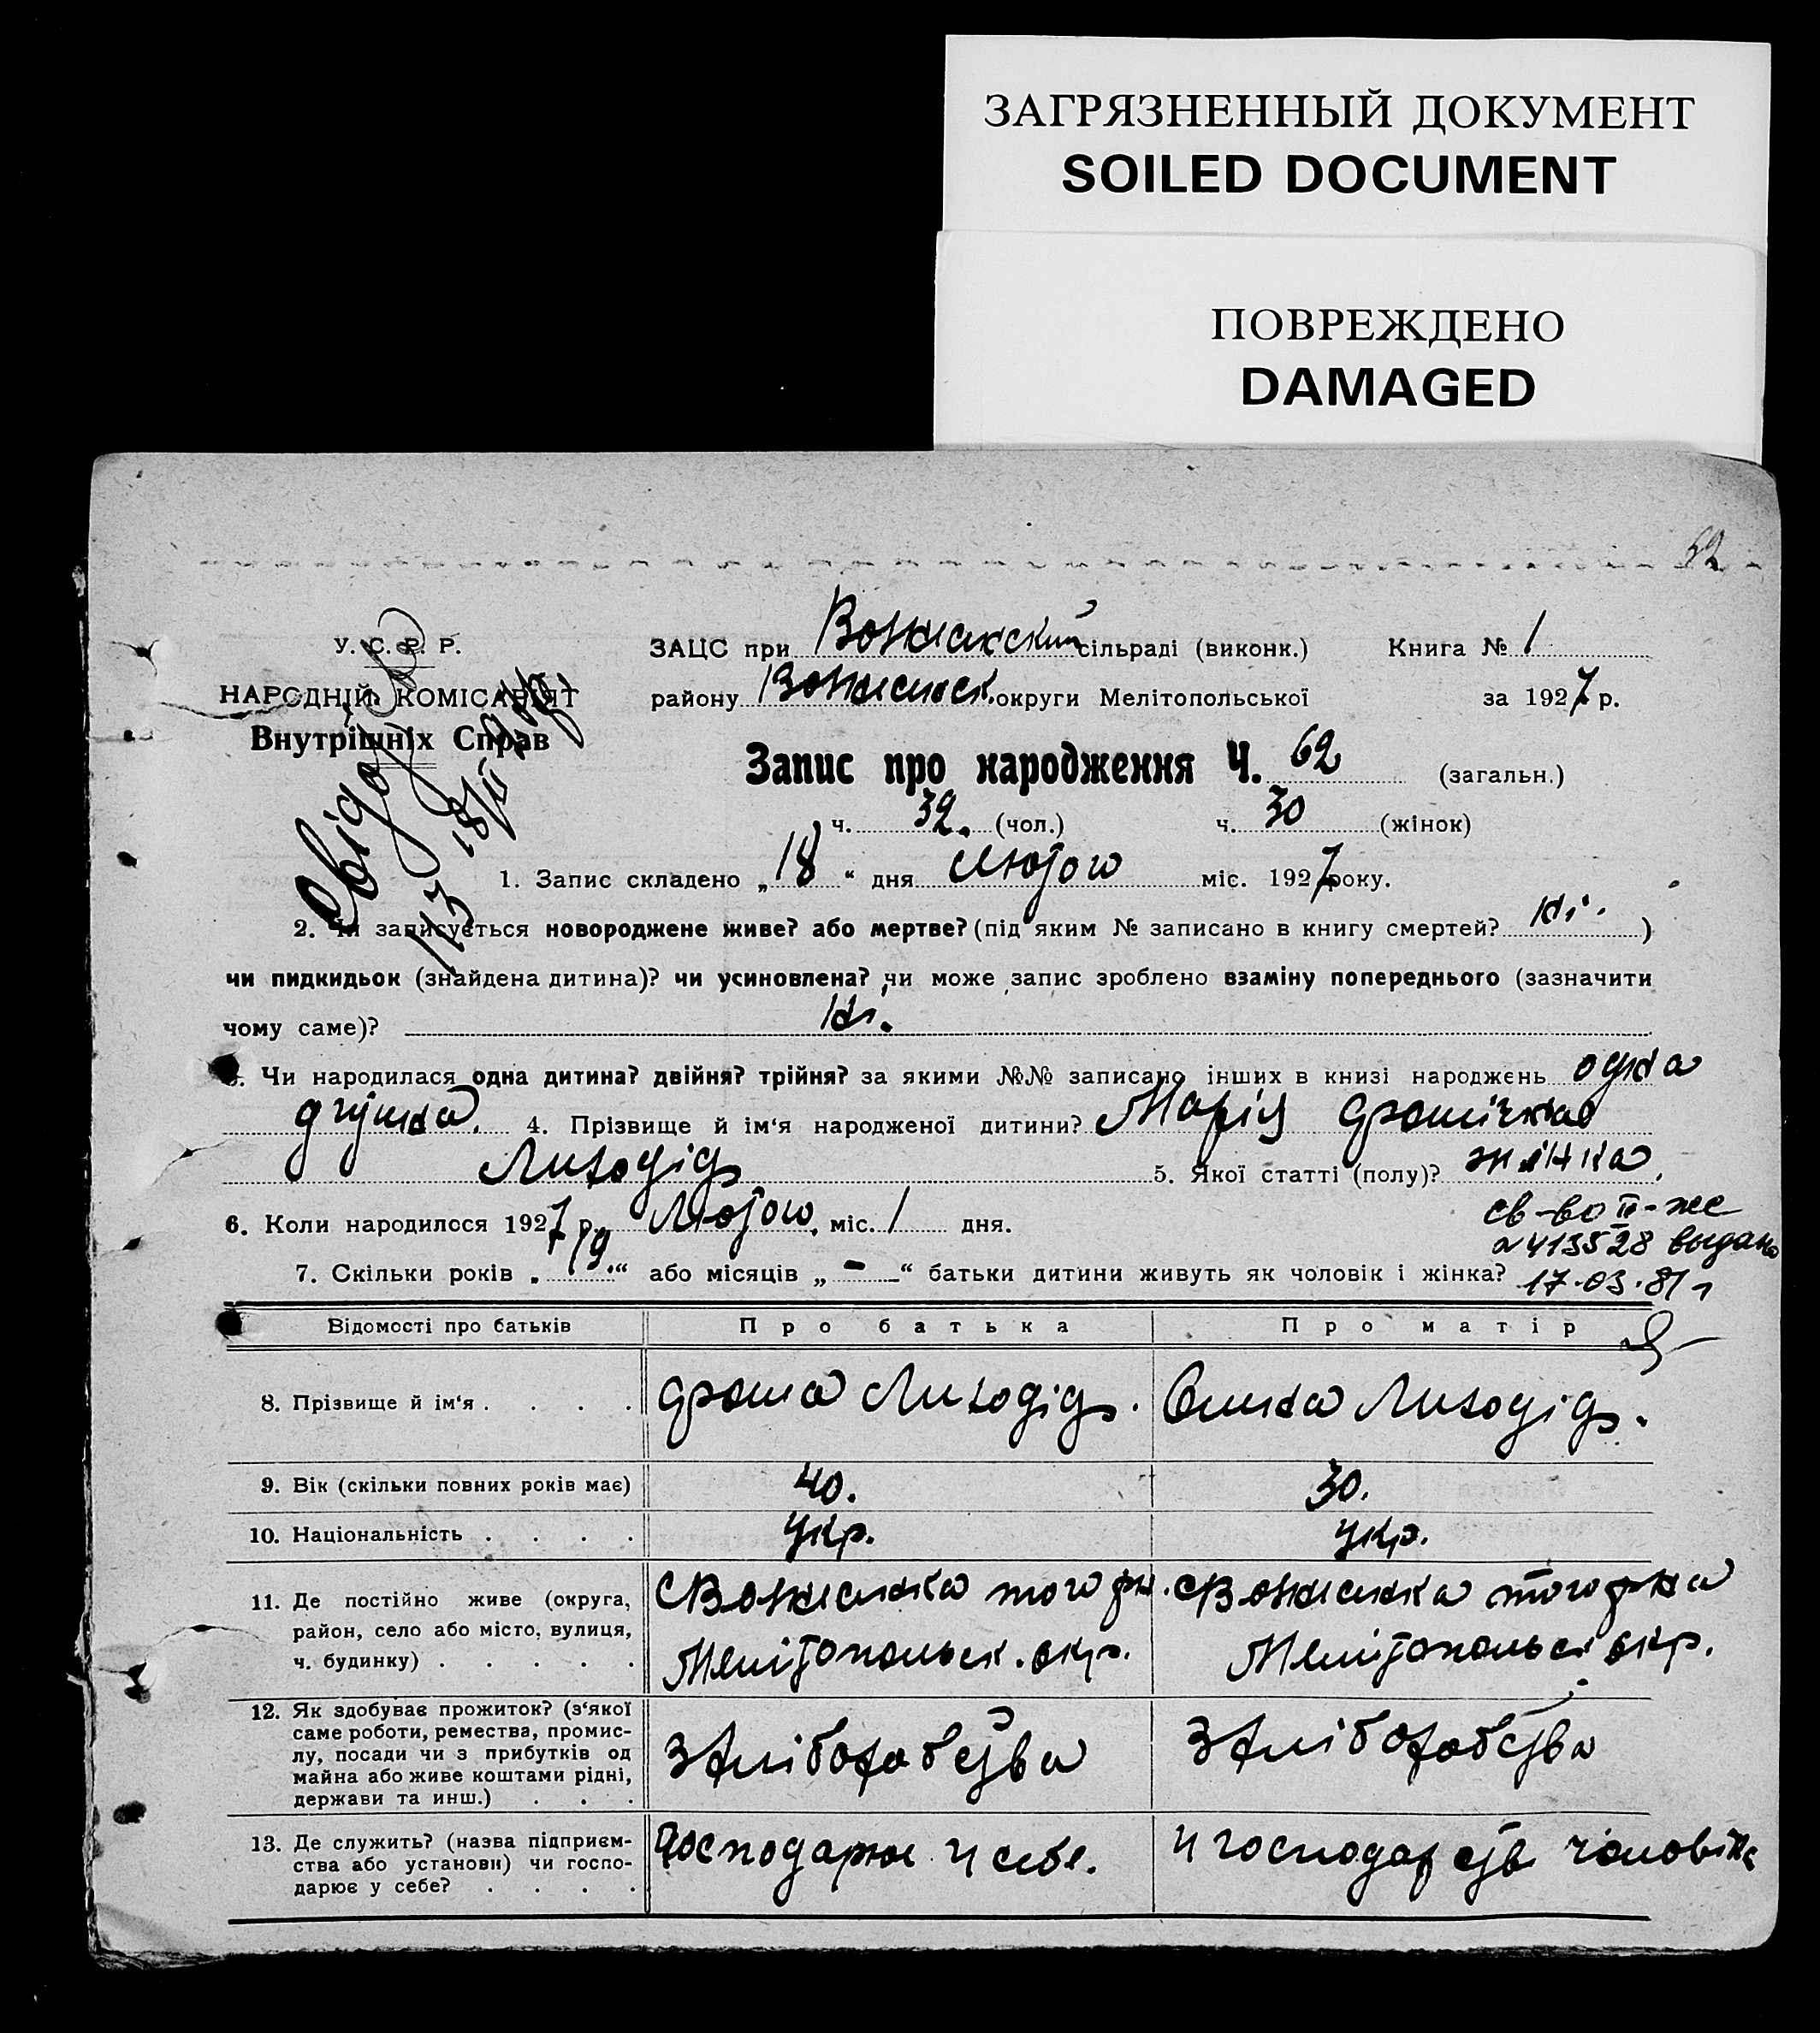 ЗАГРЯЗНЕННЫЙ ДОКУМЕНТ
SOILED DOCUMENT
ПОВРЕЖДЕНО
DAMAGED
У. С. Р. Р.
НАРОДНІЙ КОМІСАРІЯТ
Внутрішніх Справ
ЗАЦС при сільраді (виконк.) Книга № 1
району округи Мелітопольської за 1927 р.
Запис про народження Ч. 62 (загальн.)
ч. 32. (чол.) ч. 30 (жінок)
1. Запис складено „18“ дня Лютого міс. 1927 року.
2. Чи записується новороджене живе? або мертве? (під яким № записано в книгу смертей? Ні. )
чи пидкидьок (знайдена дитина)? чи усиновлена? чи може запис зроблено взаміну попереднього (зазначити
чому саме)? Ні.
3. Чи народилася одна дитина? двійня? трійня? за якими №№ записано інших в книзі народжень одна
4. Прізвище й ім‘я народженої дитини? Марія
Лизодід 5. Якої статті (полу)? жінка.
6. Коли народилося 1927 р. Лютого. міс. 1 дня.
св-во II-ое
№ 413528 выдано
17.03.81 г
7. Скільки років „19.“ або місяців „–“ батьки дитини живуть як чоловік і жінка?
Відомості про батьків Про батька Про матір
8. Прізвище й ім‘я . . . . Лизодід. Лизодід.
9. Вік (скільки повних років має) 40. 30.
10. Національність . . . . Укр. Укр.
11. Де постійно живе (округа, район, село або місто, вулиця, ч. будинку) . . . . . того рн. Мелітопольск. окр. того рна Мелітопольск окр.
12. Як здобуває прожиток? (з‘якої саме роботи, ремества, промислу, посади чи з прибутків од майна або живе коштами рідні, держави та инш.) . . . З хліборобства З хліборобства
13. Де служить? (назва підприємства або установи) чи господарює у себе? . . . . Господарює у себе. У господарстві чоловіка